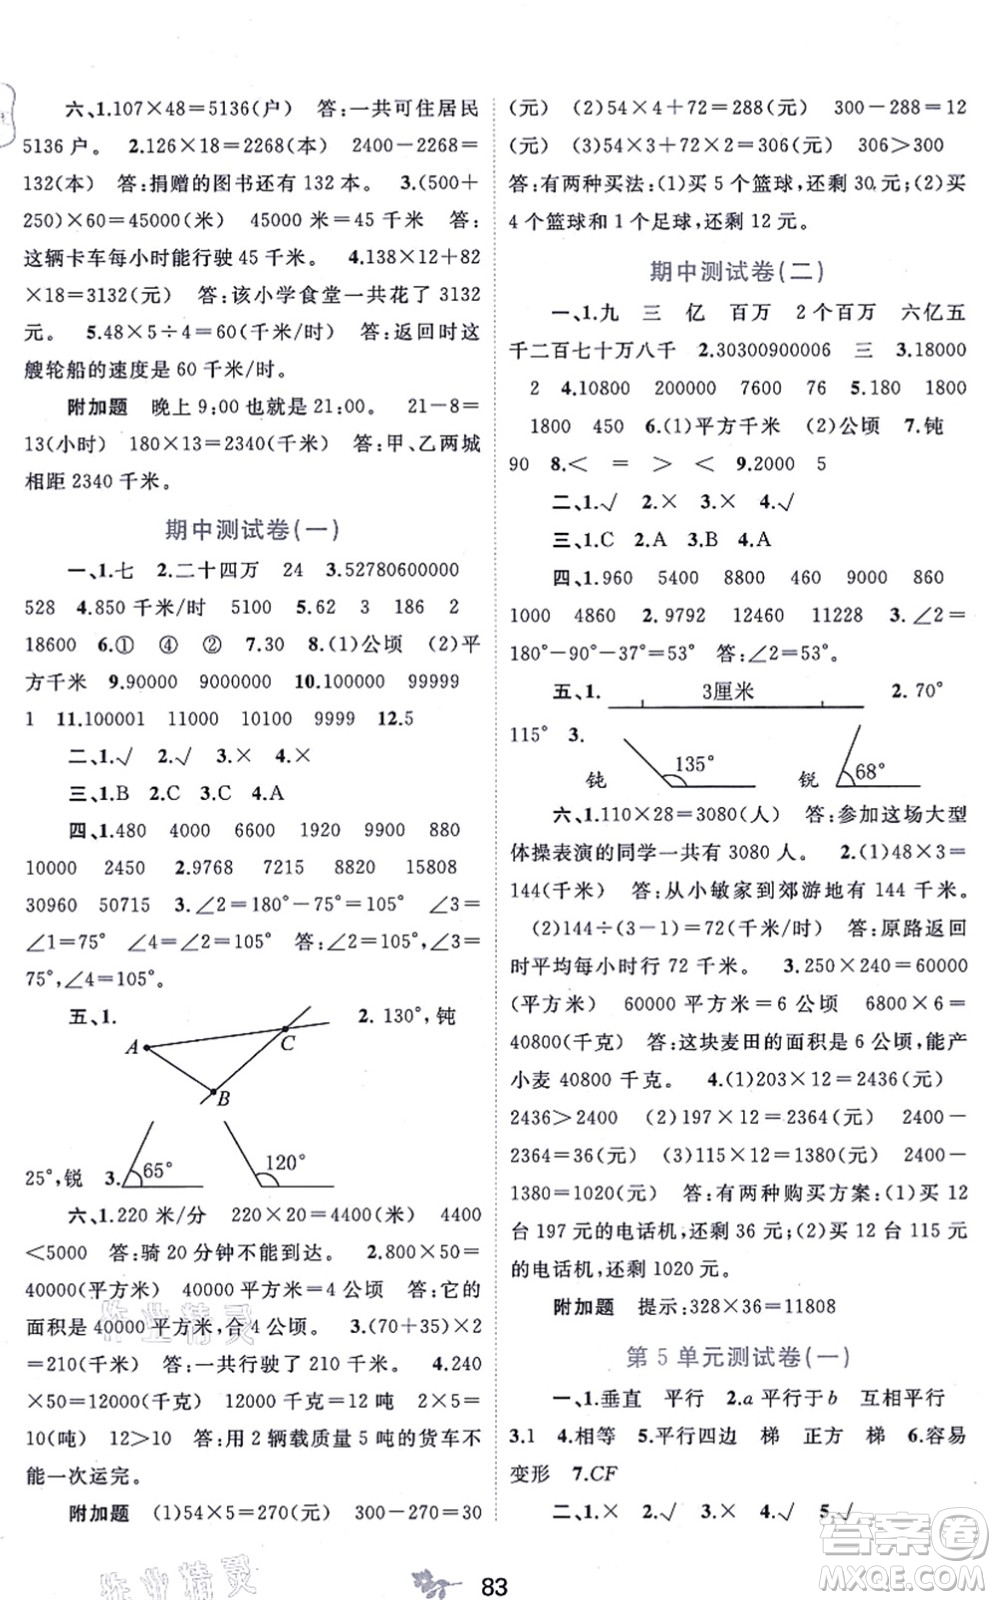 六、1.107×48=5136(户) 答:一共可住居民
5136户。 2.126×18=2268(本) 2400-2268=
132(本) 答:捐赠的图书还有132本。 3.(500+
250)×60=45000(米) 45000米=45千米 答:
这辆卡车每小时能行驶45千米。 4.138×12+82
×18=3132(元) 答:该小学食堂一共花了3132
元。 5.48×5÷4=60(千米/时) 答:返回时这
艘轮船的速度是60千米/时。
附加题 晚上9:00也就是21:00。 21-8=
13(小时) 180×13=2340(千米) 答:甲、乙两城
相距2340千米。
期中测试卷(一)
一、1.七 2.二十四万 24 3.52780600000
528 4.850千米/时 5100 5.62 3 186 2
18600 6.① ④ ② 7.30 8.(1)公顷 (2)平
方千米 9.90000 9000000 10.100000 99999
1 11.100001 11000 10100 9999 12.5
二、1.√ 2.√ 3.× 4.×
三、1.B 2.C 3.C 4.A
四、1.480 4000 6600 1920 9900 880
10000 2450 2.9768 7215 8820 15808
30960 50715 3.∠2=180°-75°=105° ∠3=
∠1=75° ∠4=∠2=105° 答:∠2=105°,∠3=
75°,∠4=105°。
五、1. 2.130°,钝
A
C
B
25°,锐 3. 65° 120°
六、1.220米/分 220×20=4400(米) 4400
<5000 答:骑20分钟不能到达。 2.800×50=
40000(平方米) 40000平方米=4公顷 答:它的
面积是40000平方米,合4公顷。 3.(70+35)×2
=210(千米) 答:一共行驶了210千米。 4.240
×50=12000(千克) 12000千克=12吨 2×5=
10(吨) 12>10 答:用2辆载质量5吨的货车不
能一次运完。
附加题 (1)54×5=270(元) 300-270=30
(元) (2)54×4+72=288(元) 300-288=12
(元) (3)54×3+72×2=306(元) 306>300
答:有两种买法:(1)买5个篮球,还剩30元;(2)买
4个篮球和1个足球,还剩12元。
期中测试卷(二)
一、1.九 三 亿 百万 2个百万 六亿五
千二百七十万八千 2.30300900006 三 3.18000
2 4.10800 200000 7600 76 5.180 1800
1800 450 6.(1)平方千米 (2)公顷 7.钝
90 8.< = > < 9.2000 5
二、1.√ 2.× 3.× 4.√
三、1.C 2.A 3.B 4.A
四、1.960 5400 8800 460 9000 860
1000 4860 2.9792 12460 11228 3.∠2=
180°-90°-37°=53° 答:∠2=53°。
五、1. 3厘米 2.70°
115° 3.
钝 135° 锐 68°
六、1.110×28=3080(人) 答:参加这场大型
体操表演的同学一共有3080人。 2.(1)48×3=
144(千米) 答:从小敏家到郊游地有144千米。
(2)144÷(3-1)=72(千米/时) 答:原路返回
时平均每小时行72千米。 3.250×240=60000
(平方米) 60000平方米=6公顷 6800×6=
40800(千克) 答:这块麦田的面积是6公顷,能产
小麦40800千克。 4.(1)203×12=2436(元)
2436>2400 (2)197×12=2364(元) 2400-
2364=36(元) (3)115×12=1380(元) 2400-
1380=1020(元) 答:有两种购买方案:(1)买12
台197元的电话机,还剩36元;(2)买12台115元
的电话机,还剩1020元。
附加题 提示:328×36=11808
第5单元测试卷(一)
一、1.垂直 平行 2.a平行于b 互相平行
3.1 4.相等 5.平行四边 梯 正方 梯 6.容易
变形 7.CF
二、1.× 2.× 3.× 4.√ 5.√
83
作业精灵
作业精灵
答案圈
MXQE.COM